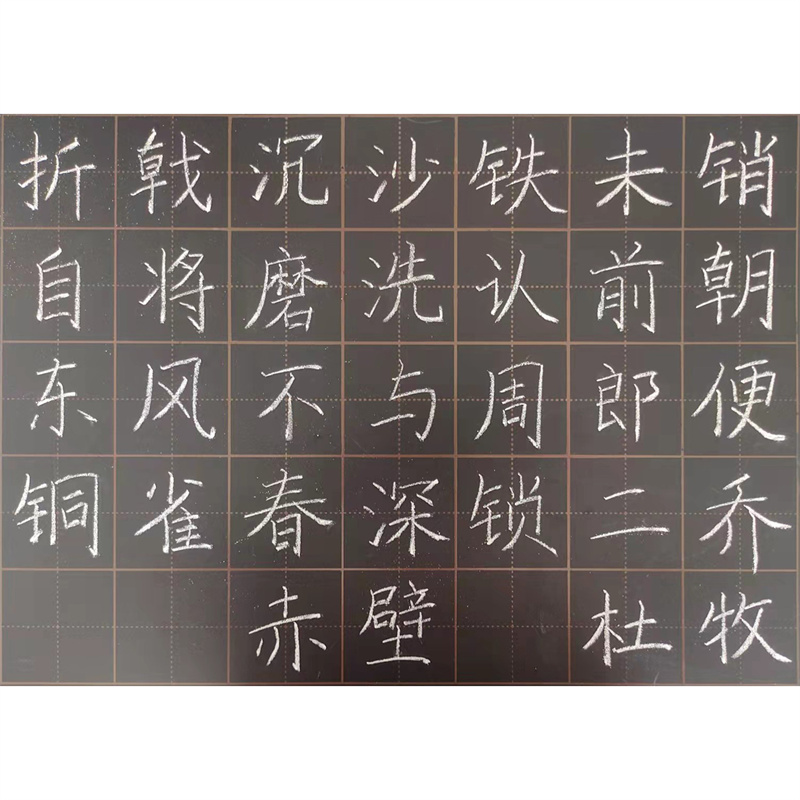 折戟沉沙铁未销
自将磨洗认前朝
东风不与周郎便
铜雀春深锁二乔
赤壁 杜牧